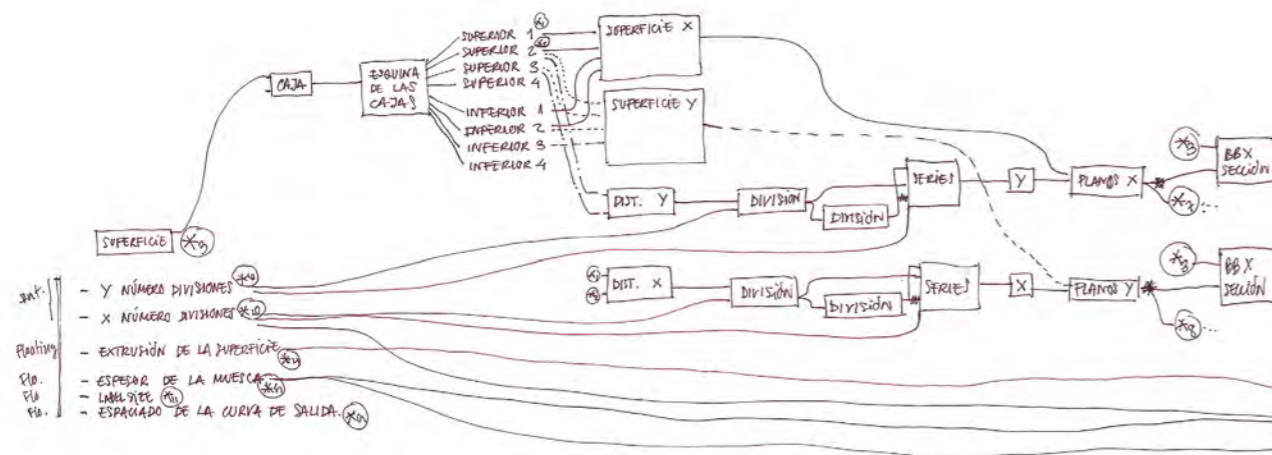 SUPERIOR 1
SUPERIOR 2
SUPERIOR 3
SUPERIOR 4
INFERIOR 1
INFERIOR 2
INFERIOR 3
INFERIOR 4
CAJA
ESQUINA
DE LAS
CAJAS
SUPERFICIE X
SUPERFICIE Y
DIST. Y
DIVISIÓN
DIVISIÓN
SERIES
Y
PLANOS X
*3
BBX
SECCIÓN
SUPERFICIE *3
DIST. X
DIVISIÓN
DIVISIÓN
SERIES
X
PLANOS Y
*3
BBX
SECCIÓN
*8
Int.
- Y NÚMERO DIVISIONES
- X NÚMERO DIVISIONES *10
Floating - EXTRUSIÓN DE LA SUPERFICIE
Flo. - ESPESOR DE LA MUESCA
Flo - LABEL SIZE
Flo. - ESPACIADO DE LA CURVA DE SALIDA.